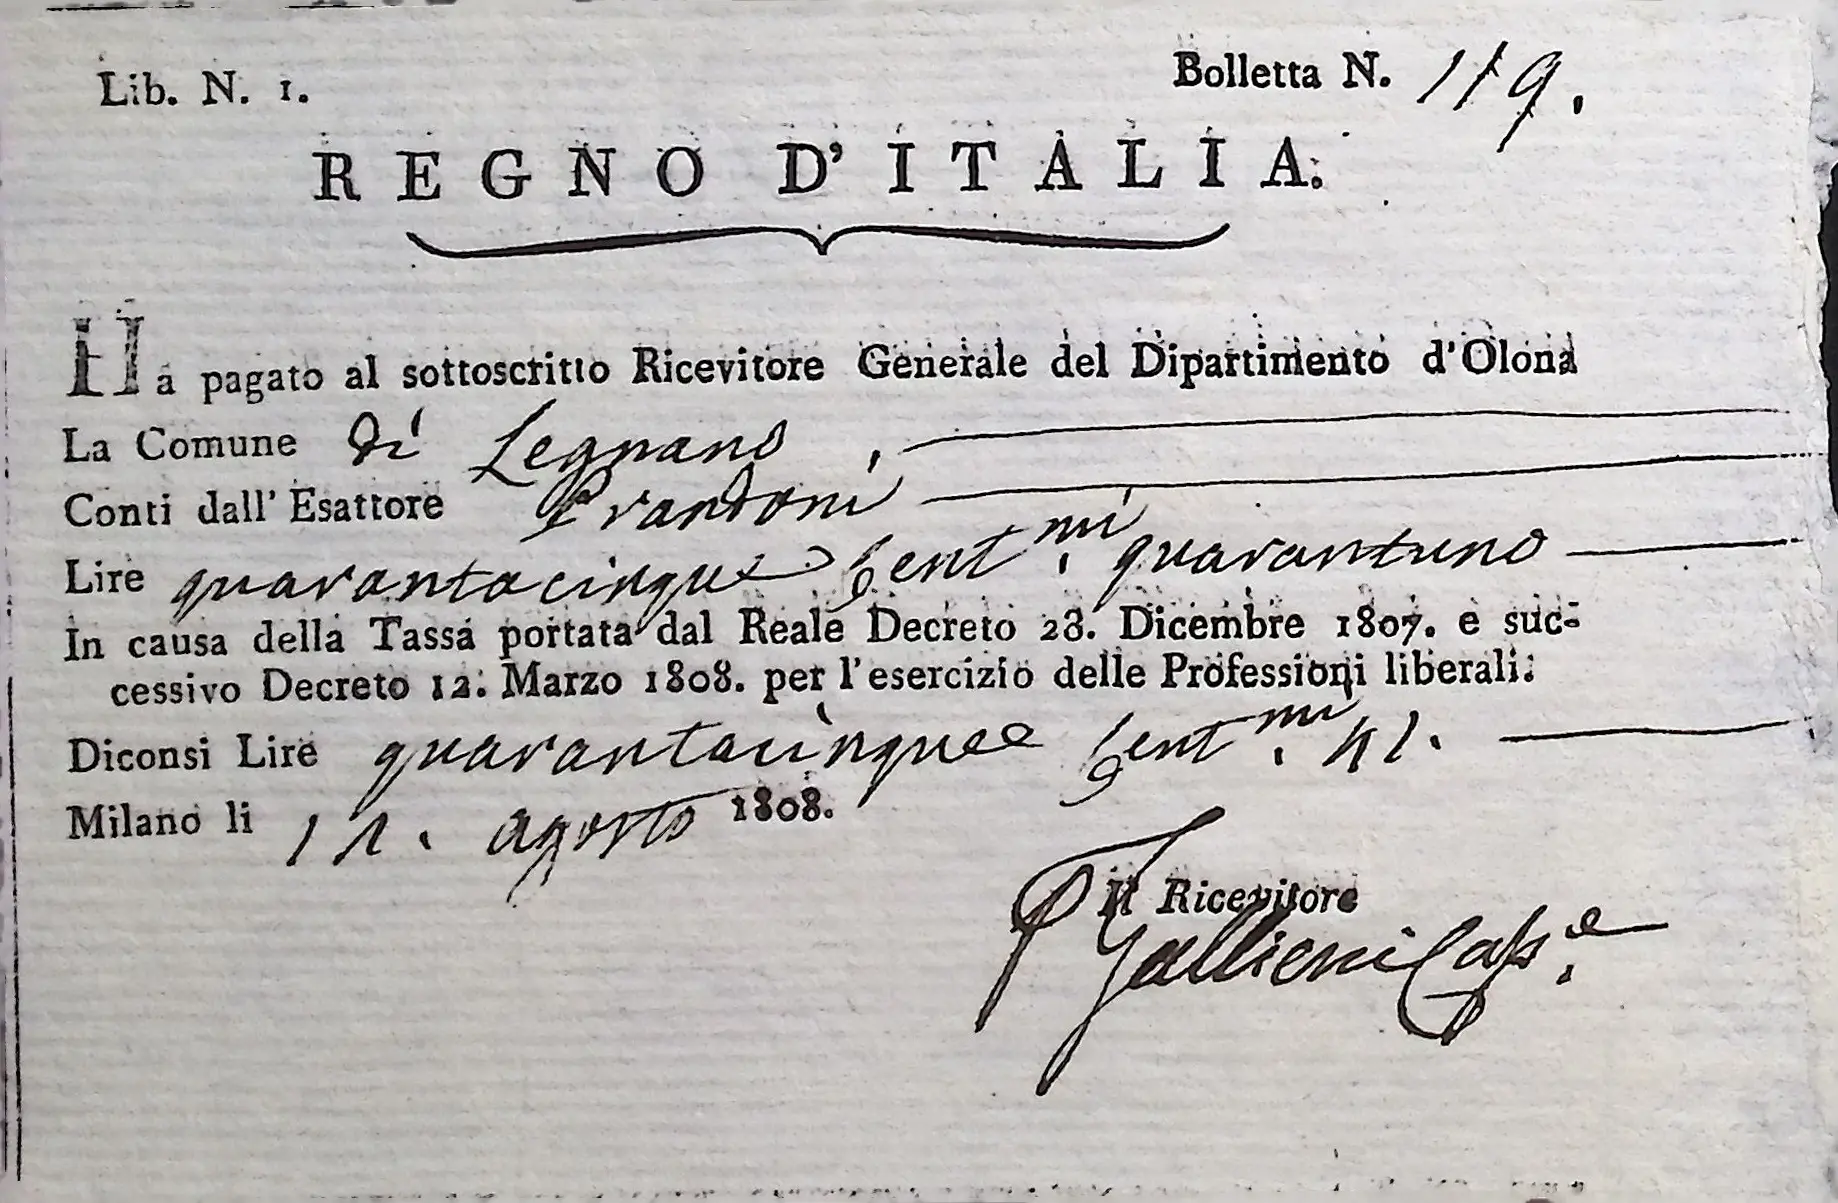 Lib. N. 1.
Bolletta N. 119.
REGNO D'ITALIA.
Ha pagato al sottoscritto Ricevitore Generale del Dipartimento d'Olona
La Comune di Legnano,
Conti dall' Esattore Prandoni
Lire quarantacinque Cent.mi quarantuno
In causa della Tassa portata dal Reale Decreto 23. Dicembre 1807. e suc-
cessivo Decreto 12. Marzo 1808. per l'esercizio delle Professioni liberali.
Diconsi Lire quarantacinque Cent.mi 41.
Milano li agosto 1808.
Il Ricevitore
Gallieni Cass.e